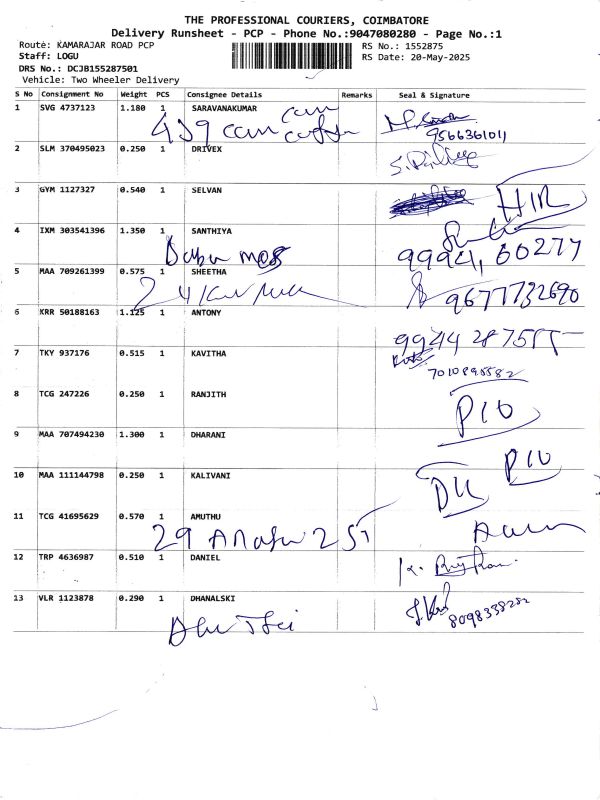 THE PROFESSIONAL COURIERS, COIMBATORE
Delivery Runsheet - PCP - Phone No.:9047080280 - Page No.:1
Route: KAMARAJAR ROAD PCP RS No.: 1552875
Staff: LOGU RS Date: 20-May-2025
DRS No.: DCJB155287501
Vehicle: Two Wheeler Delivery
S No Consignment No Weight PCS Consignee Details Remarks Seal & Signature
1 SVG 4737123 1.180 1 SARAVANAKUMAR
956636101
2 SLM 370495023 0.250 1 DRIVEX
3 GYM 1127327 0.540 1 SELVAN
4 IXM 303541396 1.350 1 SANTHIYA
Babu 9994, 60277
5 MAA 709261399 0.575 1 SHEETHA
9677732690
6 KRR 50188163 1.125 1 ANTONY
7 TKY 937176 0.515 1 KAVITHA
7010895582
8 TCG 247226 0.250 1 RANJITH
9 MAA 707494230 1.300 1 DHARANI
10 MAA 111144798 0.250 1 KALIVANI
11 TCG 41695629 0.570 1 AMUTHU
12 TRP 4636987 0.510 1 DANIEL
13 VLR 1123878 0.290 1 DHANALSKI
8098338282